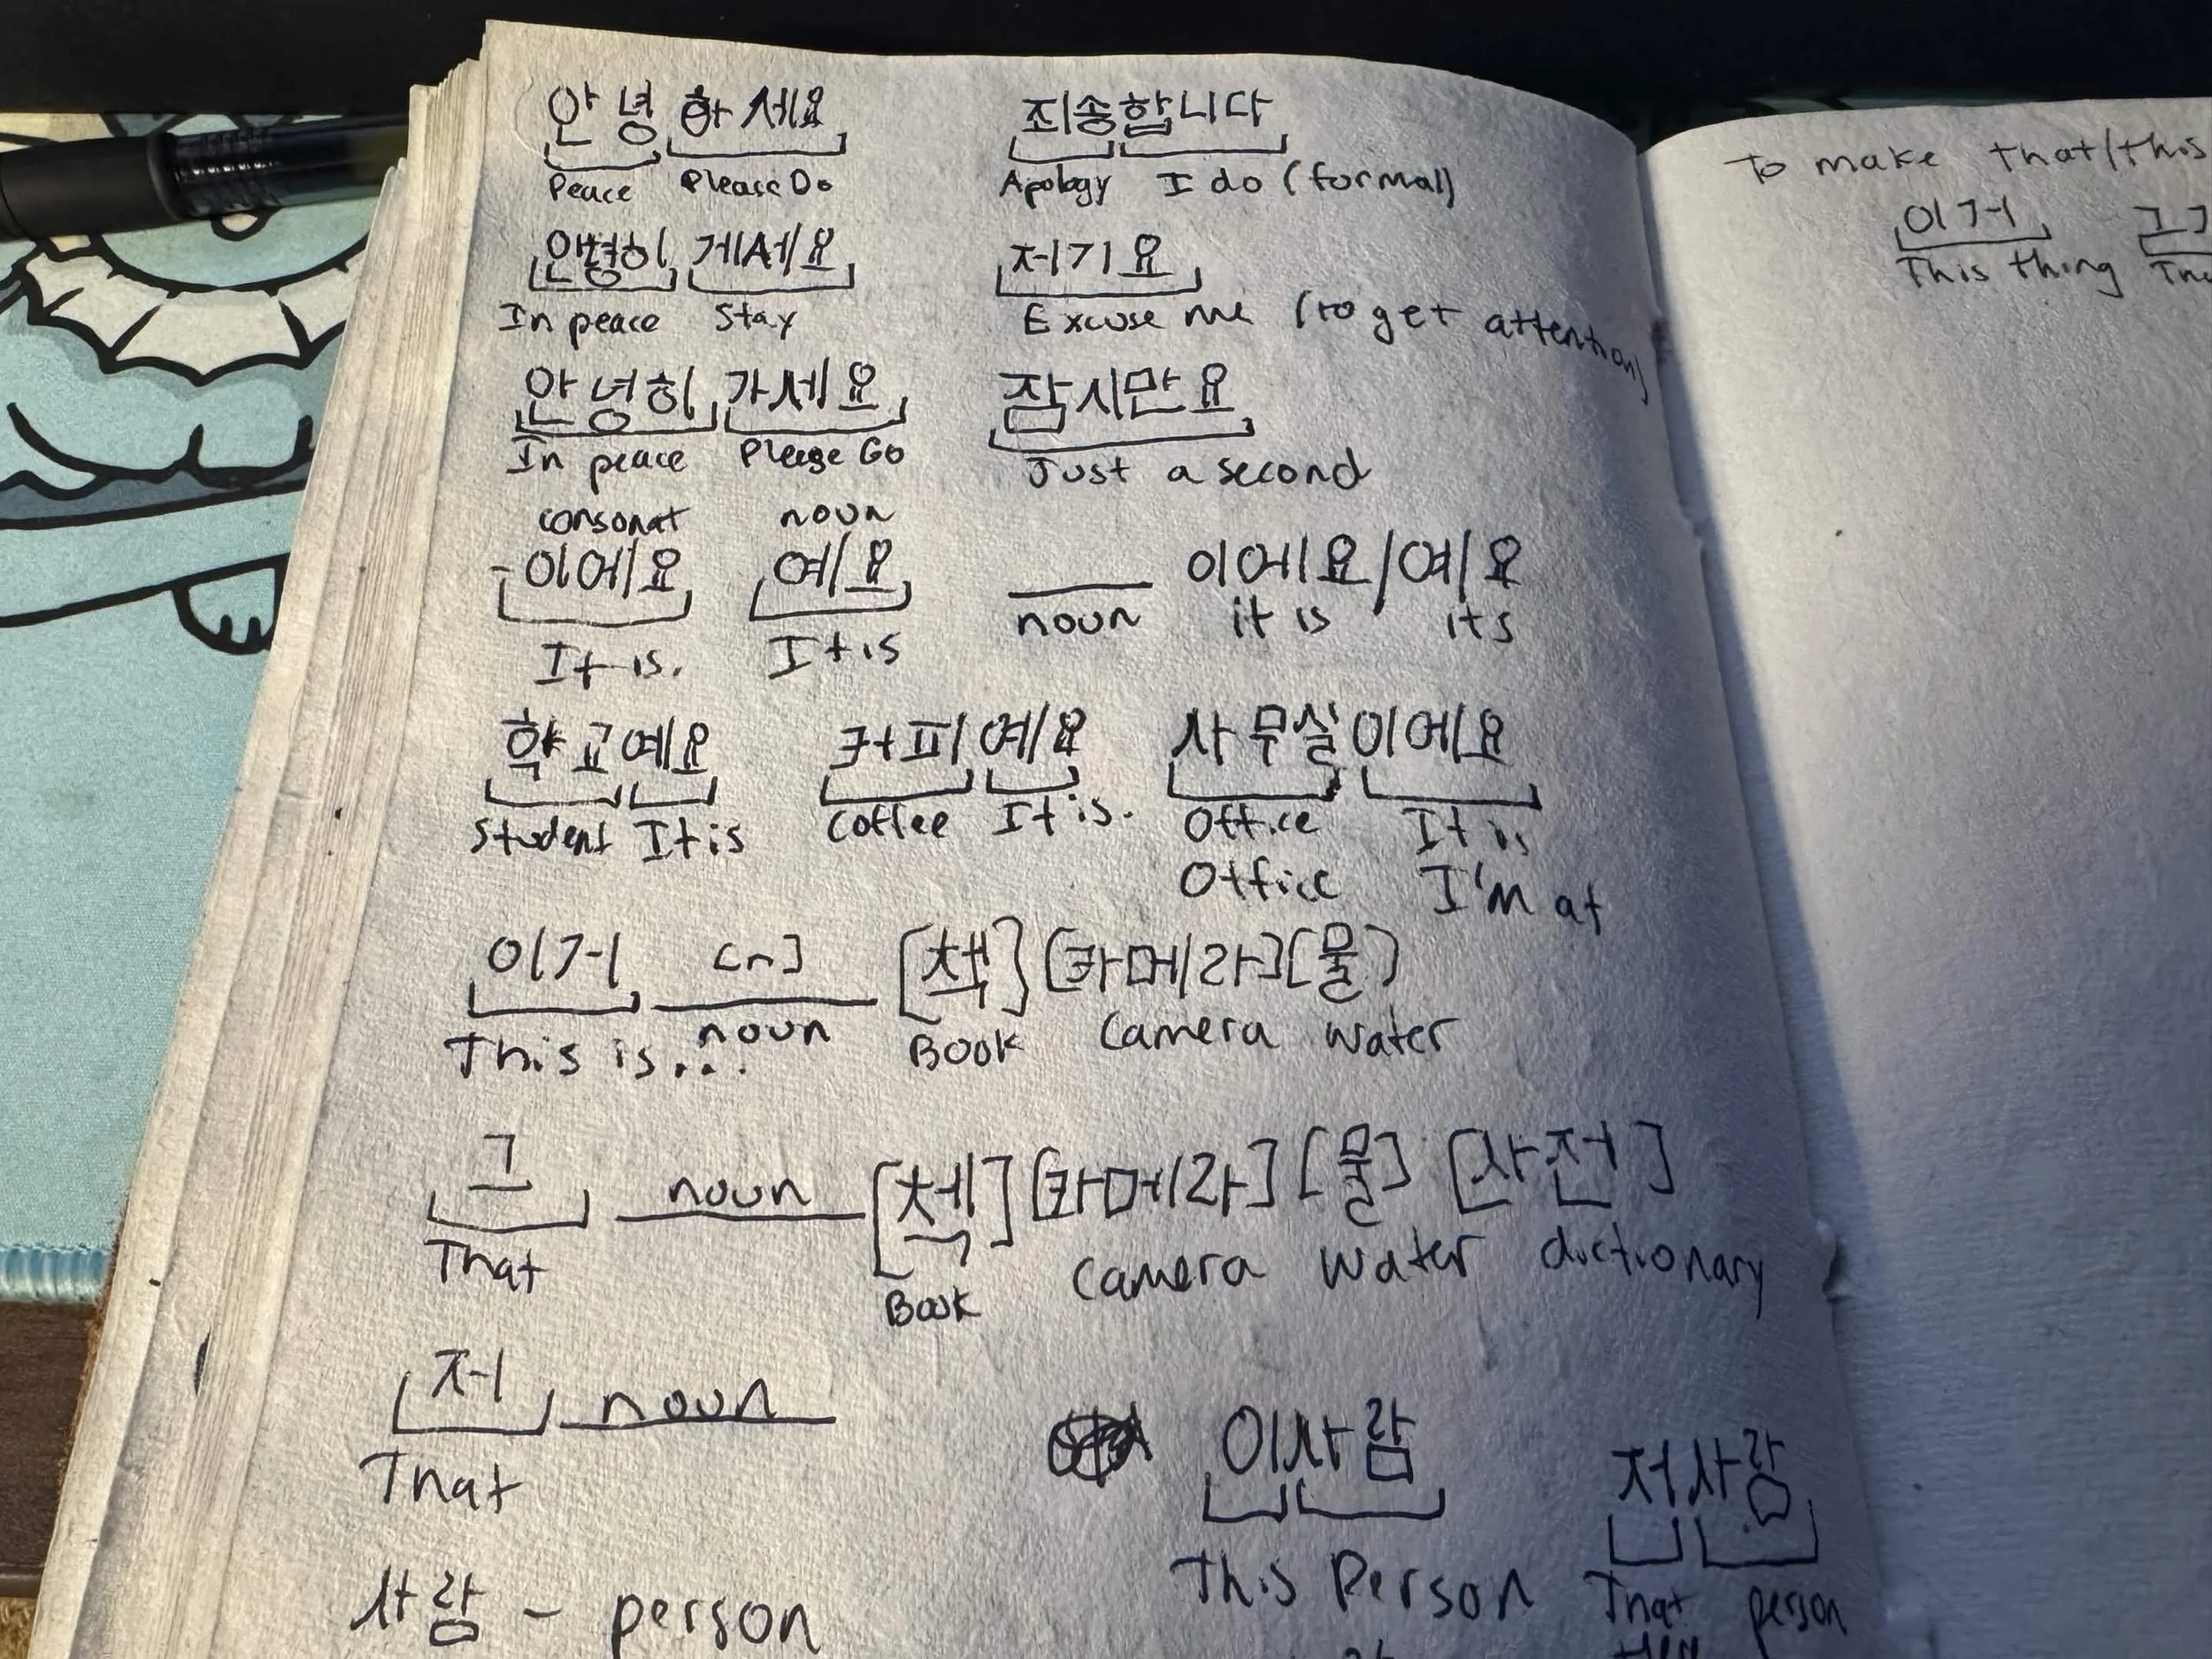 안녕하세요 죄송합니다
Peace Please Do Apology I do (formal)
안녕히 게세요 저기요
In peace Stay Excuse me (to get attention)
안녕히 가세요 잠시만요
In peace Please Go Just a second
consonat noun
-이에요 예요 ___ 이에요/예요
It is. It is noun it is its
학교예요 커피예요 사무실이에요
Student It is Coffee It is. Office It is
Office I'm at
이거 [n] [책] [카메라] [물]
This is... noun Book Camera Water
그 noun [첵] [카메라] [물] [사전]
That Book Camera Water dictionary
저 noun 이사람 저사람
That This Person That person
사람 - person
To make that/this
이거
This thing